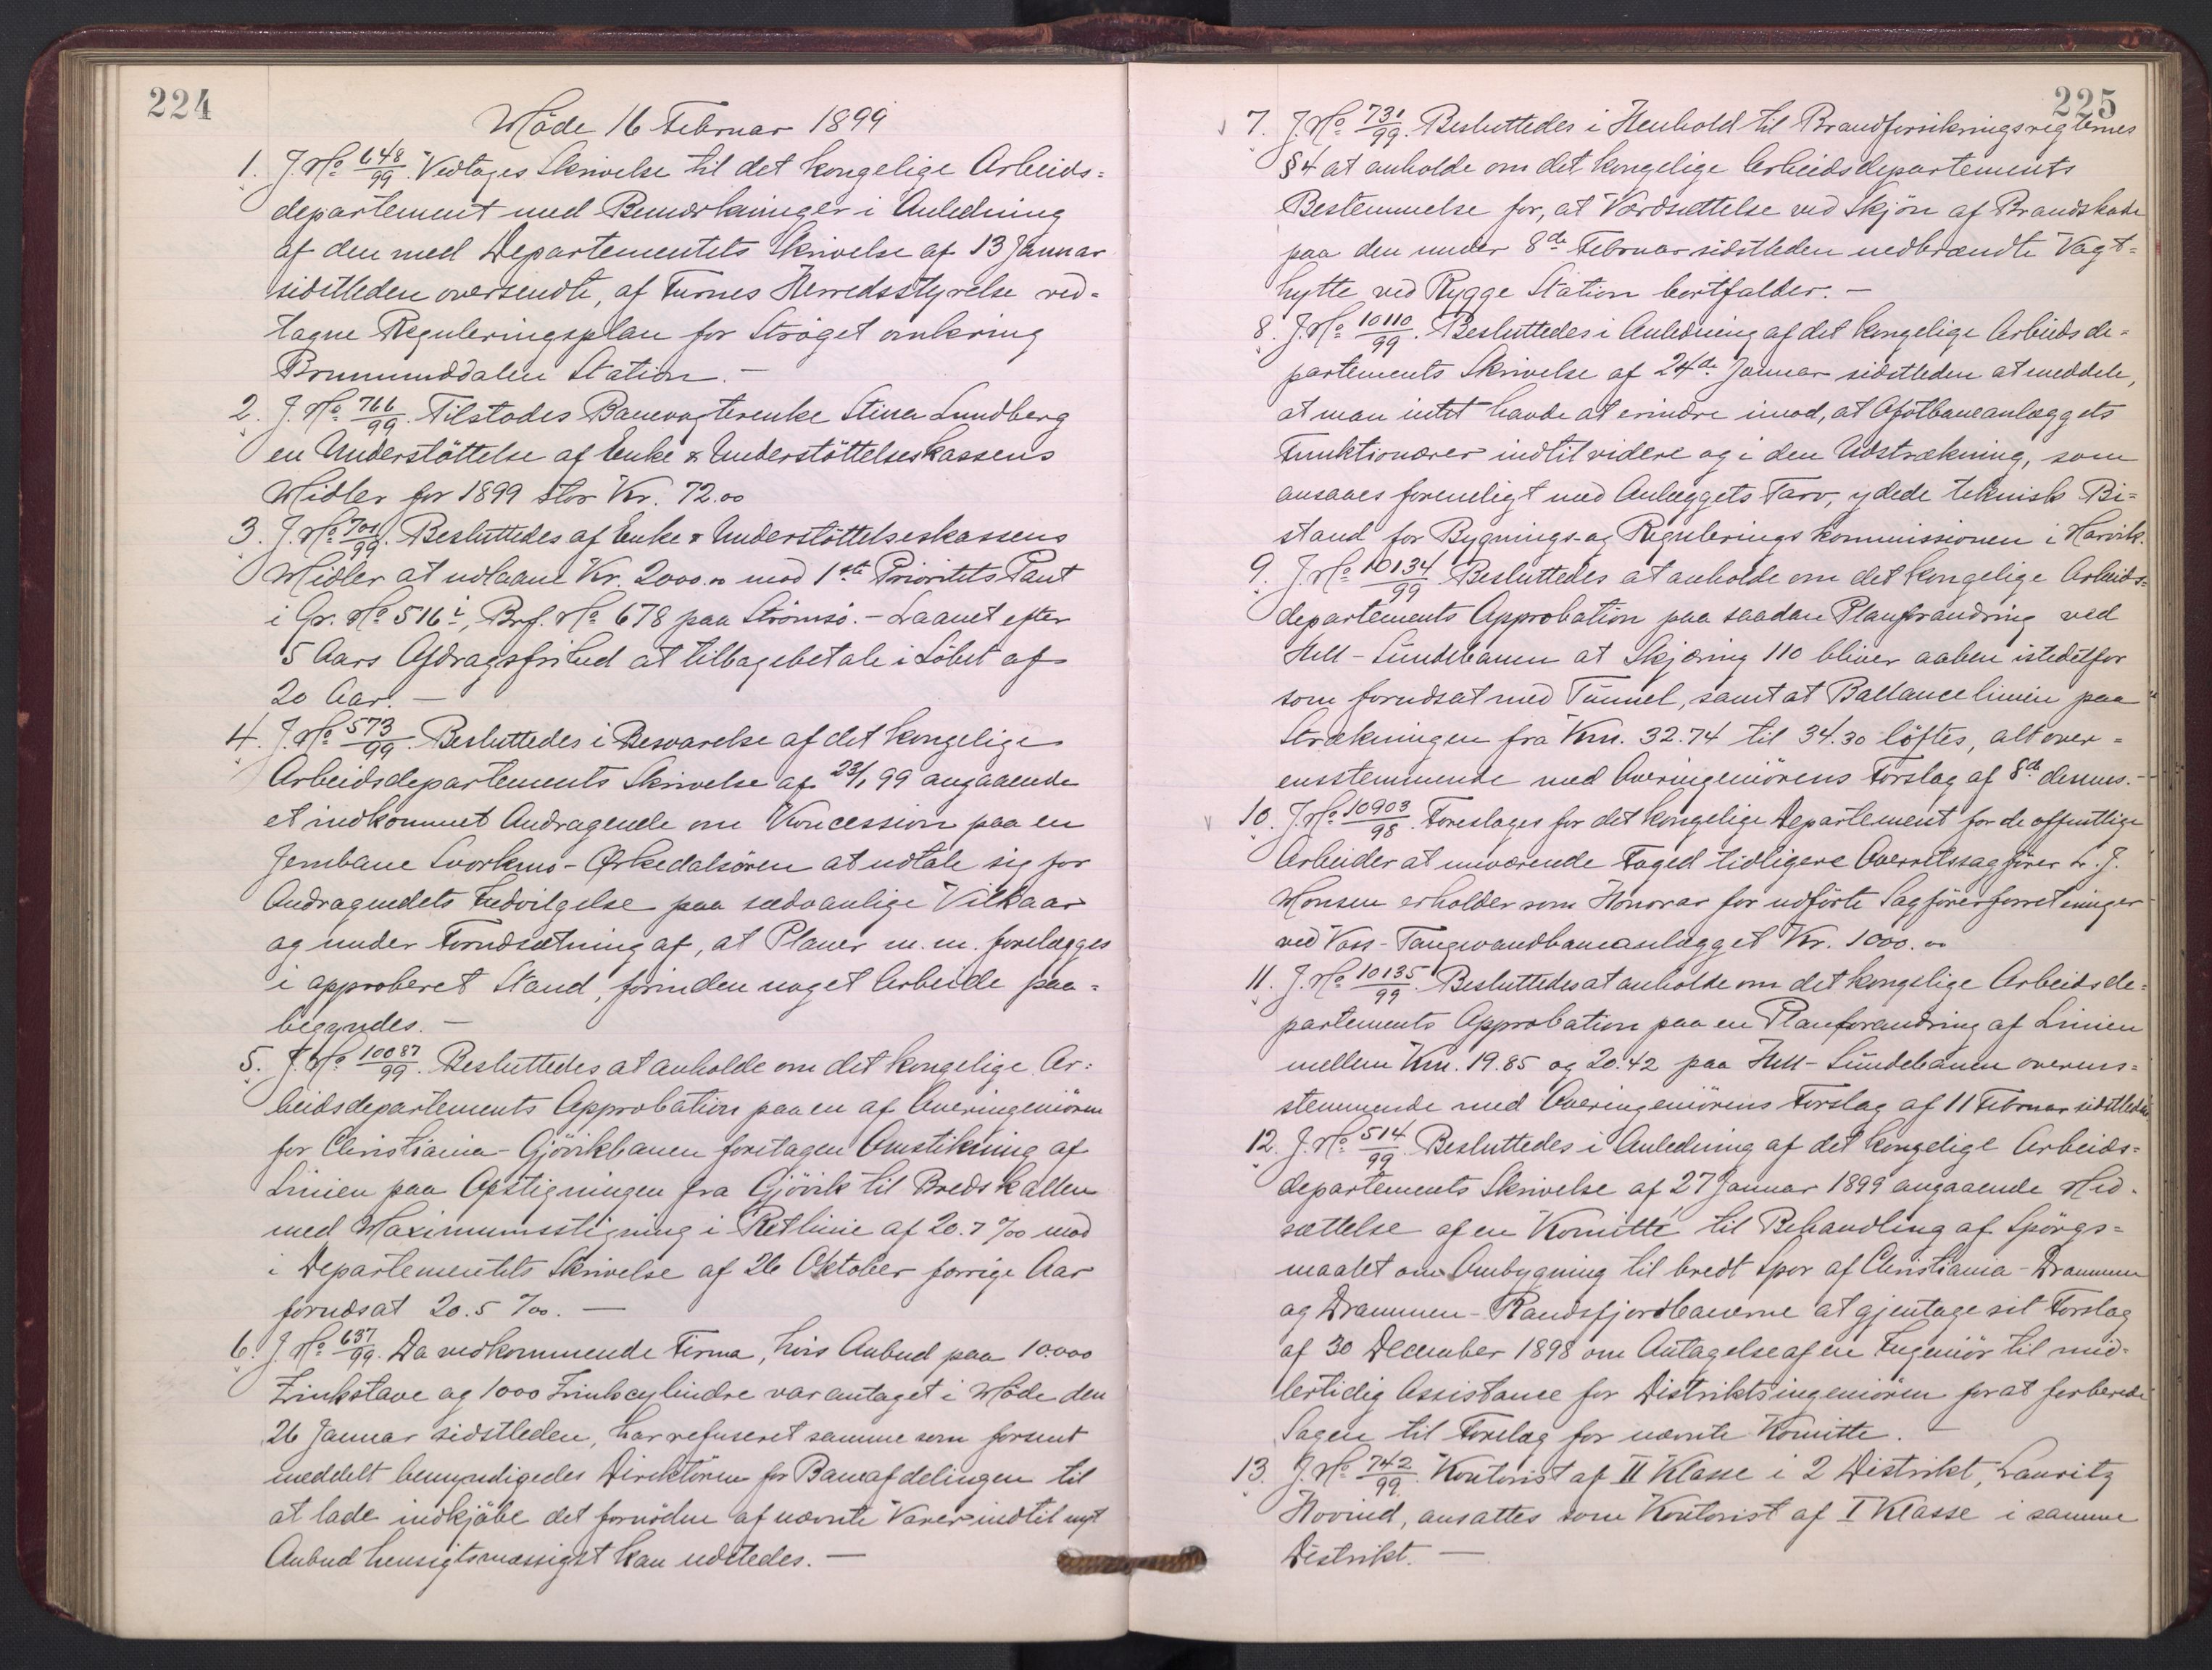 224
Möde 16 Februar 1899
1. J. No 648/99. Vedtages Skrivelse til det kongelige Arbeids=
departement med Bemærkninger i Anledning
af den med Departementets Skrivelse af 13 Januar
sidstleden oversendte, af Furnes Herredsstyrelse ved=
tagne Reguleringsplan for Ströget omkring
Brummunddalen Station. —
2. J. No 766/99. Tilstodes Banevogterenke Stina Lundberg
en Understöttelse af Enke & Understöttelseskassens
Midler for 1899 stor Kr. 72.00
3. J. No 701/99. Besluttedes af Enke & Understöttelseskassens
Midler at udlaane Kr. 2000.00 mod 1ste Prioritets Pant
i Gr. No 516 i, Brf. No 678 paa Strömsö. - Laanet efter
5 Aars Afdragsfrihed at tilbagebetale i Löbet af
20 Aar. —
4. J. No 573/99. Besluttedes i Besvarelse af det kongelige
Arbeidsdepartements Skrivelse af 23/1 99 angaaende
et indkommet Andragende om Koncession paa en
Jernbane Svorkmo-Ørkedalsören at udtale sig for
Andragendets Indvilgelse paa sædvanlige Vilkaar
og under Forudsætning af, at Planer m. m. forelægges
i approberet Stand, forinden noget Arbeide paa=
begyndes. —
5. J. No 10087/99. Besluttedes at anholde om det kongelige Ar=
beidsdepartements Approbation paa en af Overingeniören
for Christiania-Gjövikbanen foretagen Omstikning af
Linien paa Opstigningen fra Gjövik til Bredskallen
med Maximumsstigning i Retlinie af 20.7 ‰ mod
i Departementets Skrivelse af 26 Oktober forrige Aar
forudsat 20.5 ‰. —
6. J. No 637/99. Da vedkommende Firma, hvis Anbud paa 10.000
Zinkstave og 1000 Zinkcylindre var antaget i Möde den
26 Januar sidstleden, har refuseret samme som forsent
meddelt bemyndigedes Direktören for Baneafdelingen til
at lade indkjöbe det fornödne af nævnte Varer indtil nyt
Anbud hensigtsmæssigst kan udstedes. —
225
7. J. No 731/99. Besluttedes i Henhold til Brandforsikringsreglernes
§ 4 at anholde om det kongelige Arbeidsdepartements
Bestemmelse for, at Værdsættelse ved Skjön af Brandskade
paa den under 8de Februar sidstleden nedbrændte Vagt=
hytte ved Rygge Station bortfalder. —
8. J. No 10110/99. Besluttedes i Anledning af det kongelige Arbeidsde=
partements Skrivelse af 24de Januar sidstleden at meddele,
at man intet havde at erindre imod, at Ofotbaneanlæggets
Funktionærer indtil videre og i den Udstrækning, som
ansaaes foreneligt med Anlæggets Tarv, ydede teknisk Bi=
stand for Bygnings- og Reguleringskommissionen i Narvik.
9. J. No 10134/99 Besluttedes at anholde om det kongelige Arbeids=
departements Approbation paa saadan Planforandring ved
Hell-Sundebanen at Skjæring 110 bliver aaben istedetfor
som forudsat med Tunnel, samt at Ballancelinien paa
Strækningen fra Km. 32.74 til 34.30 löftes, alt over=
ensstemmende med Overingeniörens Forslag af 8de dennes. —
10. J. No 10903/98. Foreslages for det kongelige Departement for de offentlige
Arbeider at nuværende Foged tidligere Overretssagförer L. J.
Monsen erholder som Honorar for udförte Sagförerforretninger
ved Voss-Taugevandbaneanlægget Kr. 1000.00
11. J. No 10135/99. Besluttedes at anholde om det kongelige Arbeidsde=
partements Approbation paa en Planforandring af Linien
mellem Km. 19.85 og 20.42 paa Hell-Sundebanen overens=
stemmende med Overingeniörens Forslag af 11 Februar sidstleden
12. J. No 514/99. Besluttedes i Anledning af det kongelige Arbeids=
departements Skrivelse af 27 Januar 1899 angaaende Ned=
sættelse af en Komitté til Behandling af Spörgs=
maalet om Ombygning til bredt Spor af Christiania-Drammen
og Drammen-Randsfjordbanerne at gjentage sit Forslag
af 30 December 1898 om Antagelse af en Ingeniör til mid=
lertidig Assistance for Distriktsingeniören for at forberede
Sagen til Forelæg for nævnte Komitte. —
13. J. No 742/99. Kontorist af II Klasse i 2 Distrikt, Lauritz
Hovind, ansattes som Kontorist af I Klasse i samme
Distrikt. —